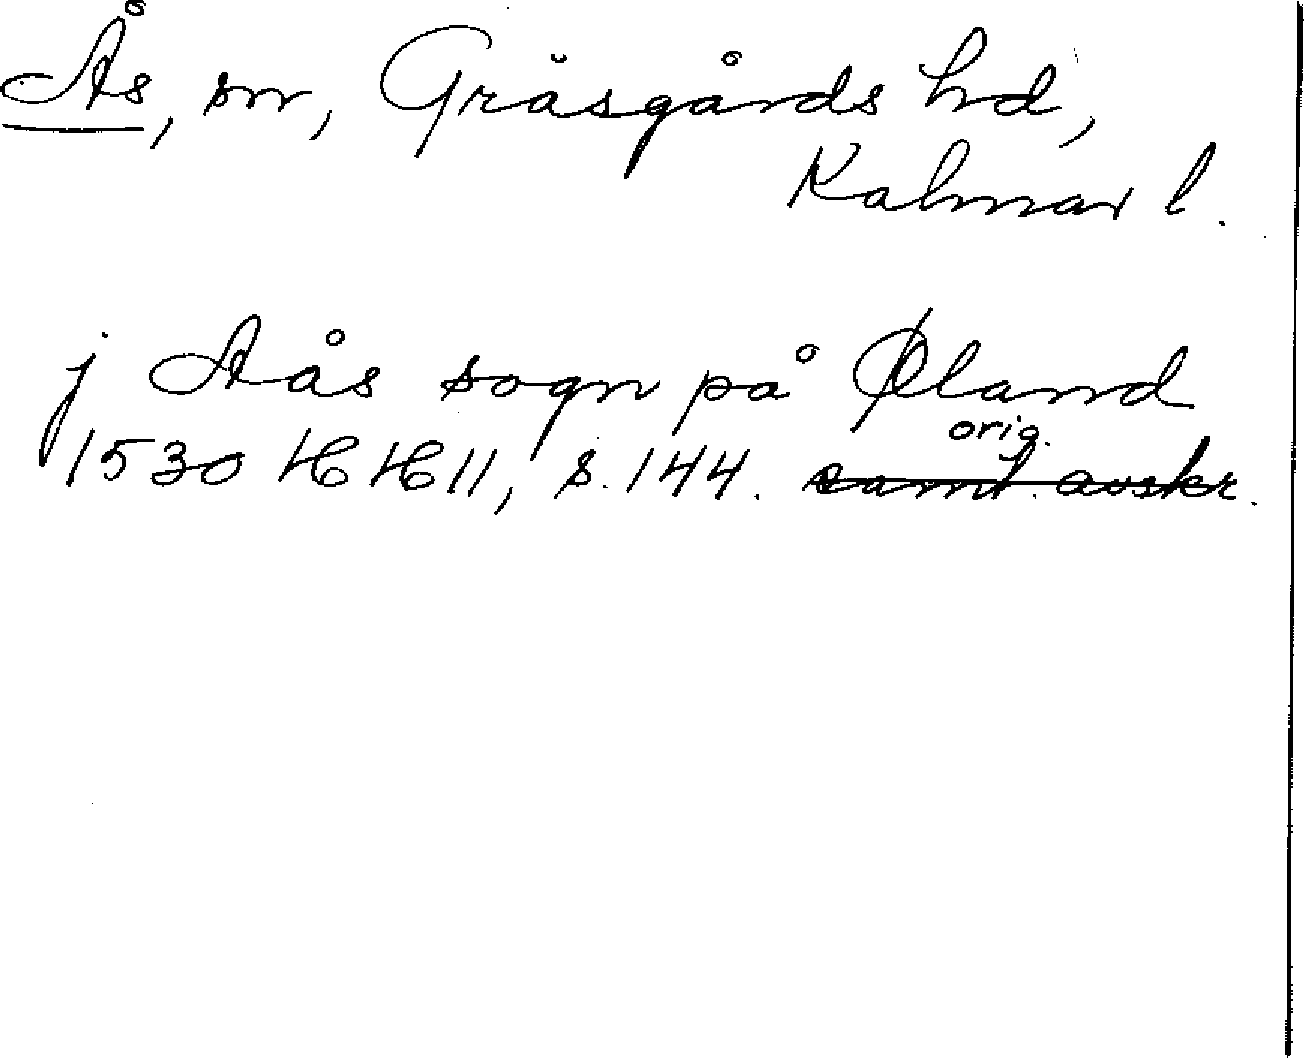 Ås, sn, Gräsgårds hd,
Kalmar l.
j Aås sogn på Øland
orig.
1530 HH 11, s. 144. samt. avskr.